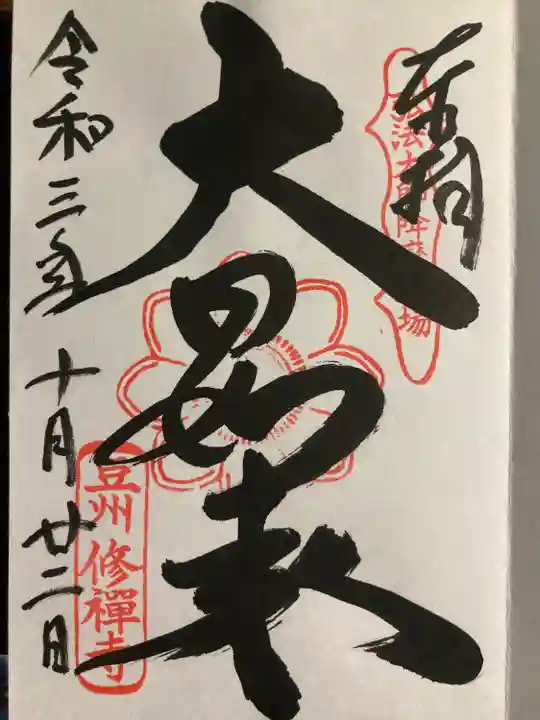 奉拝
弘法大師降魔道場
大日如来
令和三年十月廿二日
豆州修禪寺